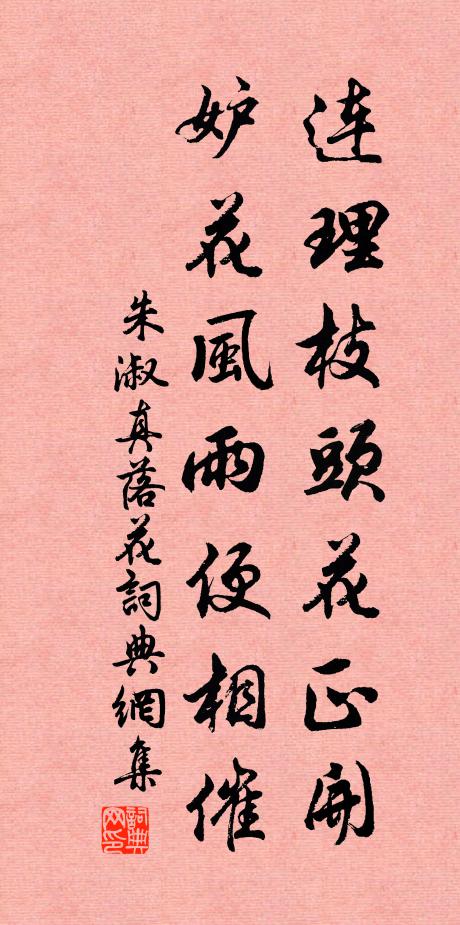 連理枝頭花正開
妒花風雨便相催
朱淑真落花詞典網集
詞典網印